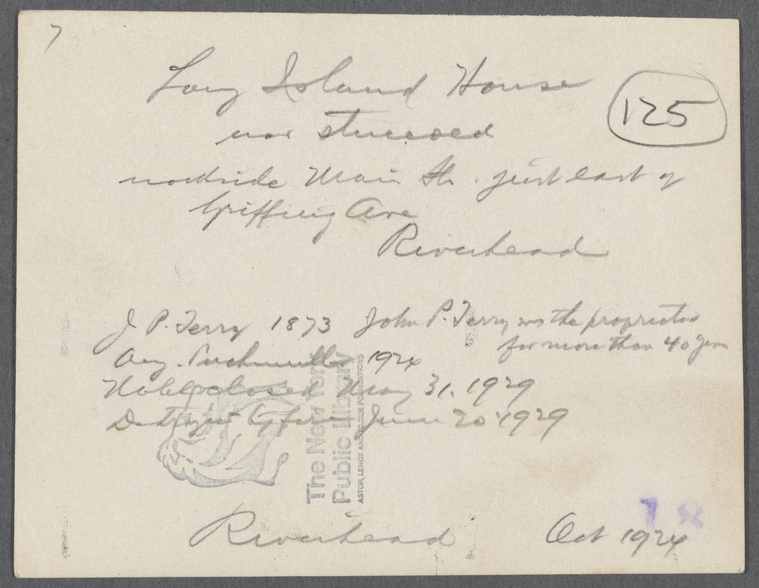 7
Long Island House
125
now stuccoed
northside Main St. just east of
Griffing Ave
Riverhead
J. P. Terry 1873 John P. Terry was the proprietor
for more than 40 years
Aug. 1924
Hotel closed May 31, 1929
Destroyed by fire June 20 1929
The New York
Public Library
ASTOR, LENOX AND TILDEN FOUNDATIONS
18
Riverhead Oct 1924